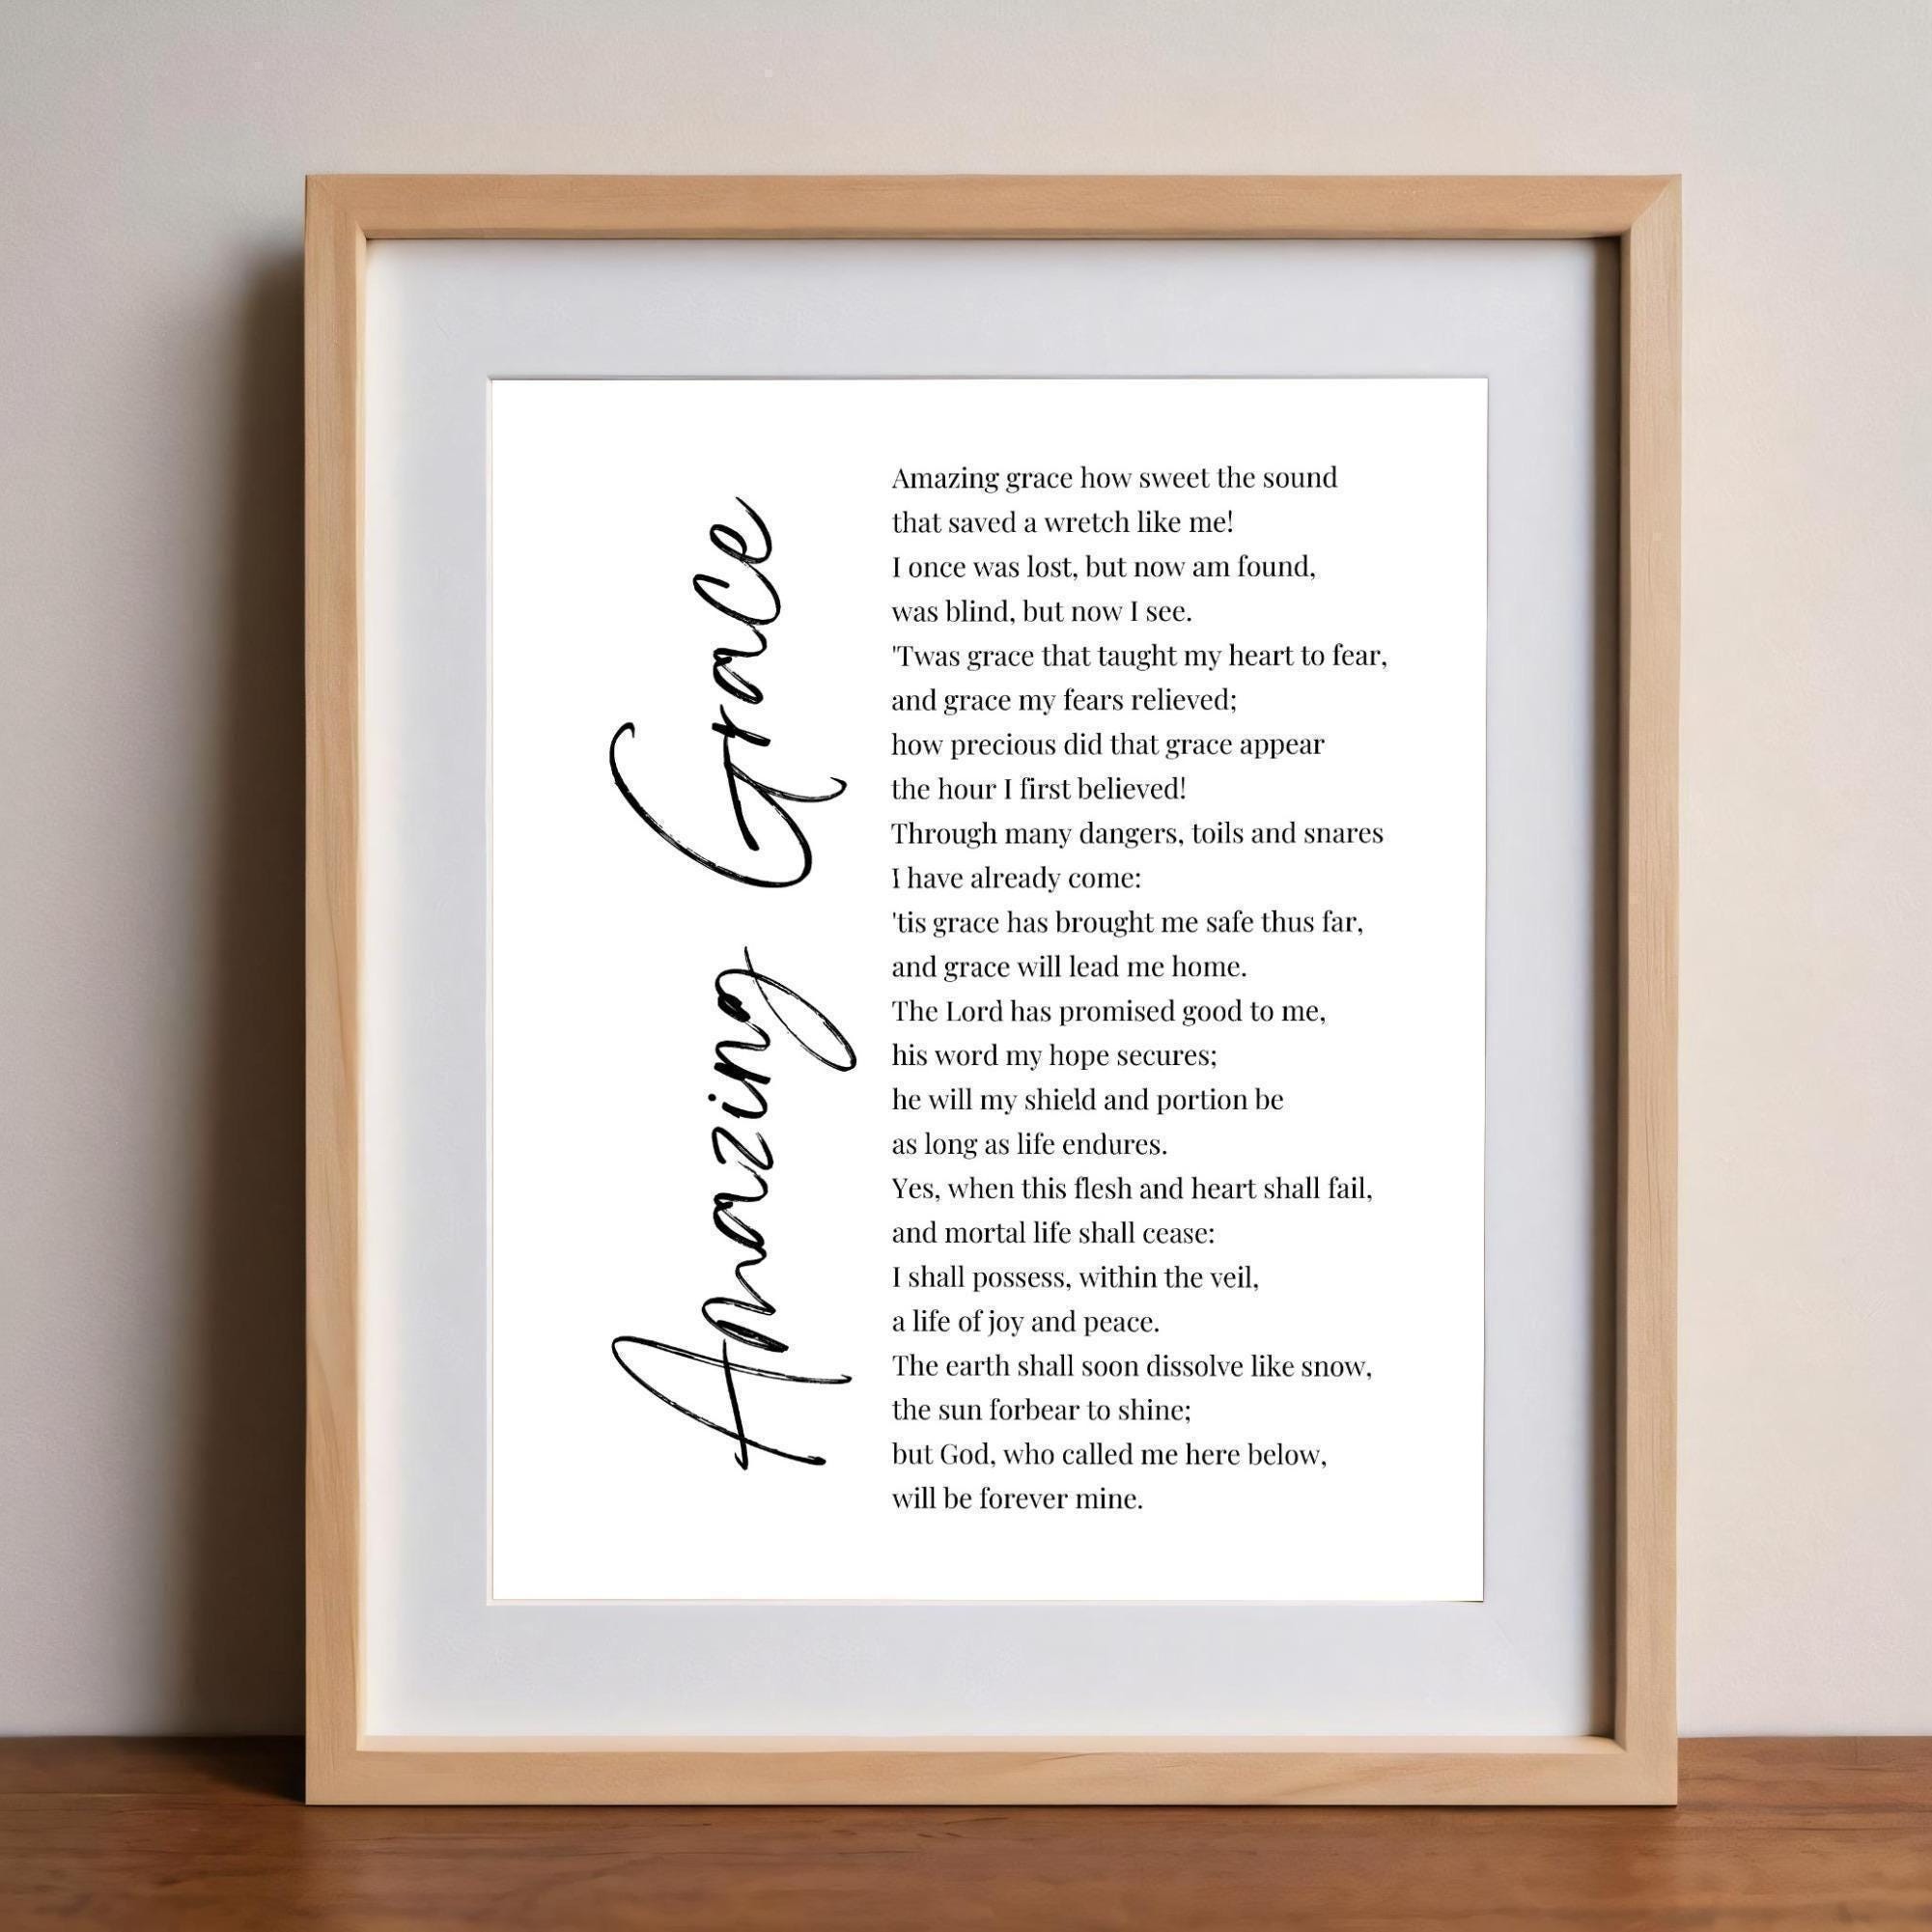 Amazing Grace
Amazing grace how sweet the sound
that saved a wretch like me!
I once was lost, but now am found,
was blind, but now I see.
'Twas grace that taught my heart to fear,
and grace my fears relieved;
how precious did that grace appear
the hour I first believed!
Through many dangers, toils and snares
I have already come:
'tis grace has brought me safe thus far,
and grace will lead me home.
The Lord has promised good to me,
his word my hope secures;
he will my shield and portion be
as long as life endures.
Yes, when this flesh and heart shall fail,
and mortal life shall cease:
I shall possess, within the veil,
a life of joy and peace.
The earth shall soon dissolve like snow,
the sun forbear to shine;
but God, who called me here below,
will be forever mine.